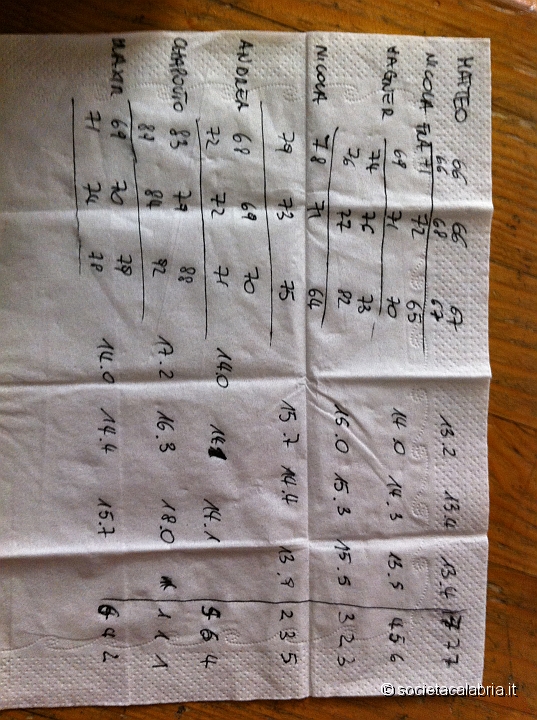 MATTEO 66 66 67
66 68 67 13.2 13.4 13.4 7 7 7
NICOLA FRA 71 72 65
WAGNER 68 71 70 14.0 14.3 13.5 4 5 6
74 76 73
76 77 82 16.0 15.3 15.5 3 2 3
NICOLA 78 71 64
79 73 75 15.7 14.4 13.9 2 3 5
ANDREA 68 69 70
72 72 71 14.0 14.1 5 6 4
83 77 88
89 84 92 17.2 16.3 18.0 1 1 1
69 70 79
71 74 78 14.0 14.4 15.7 6 4 2
© societacalabria.it